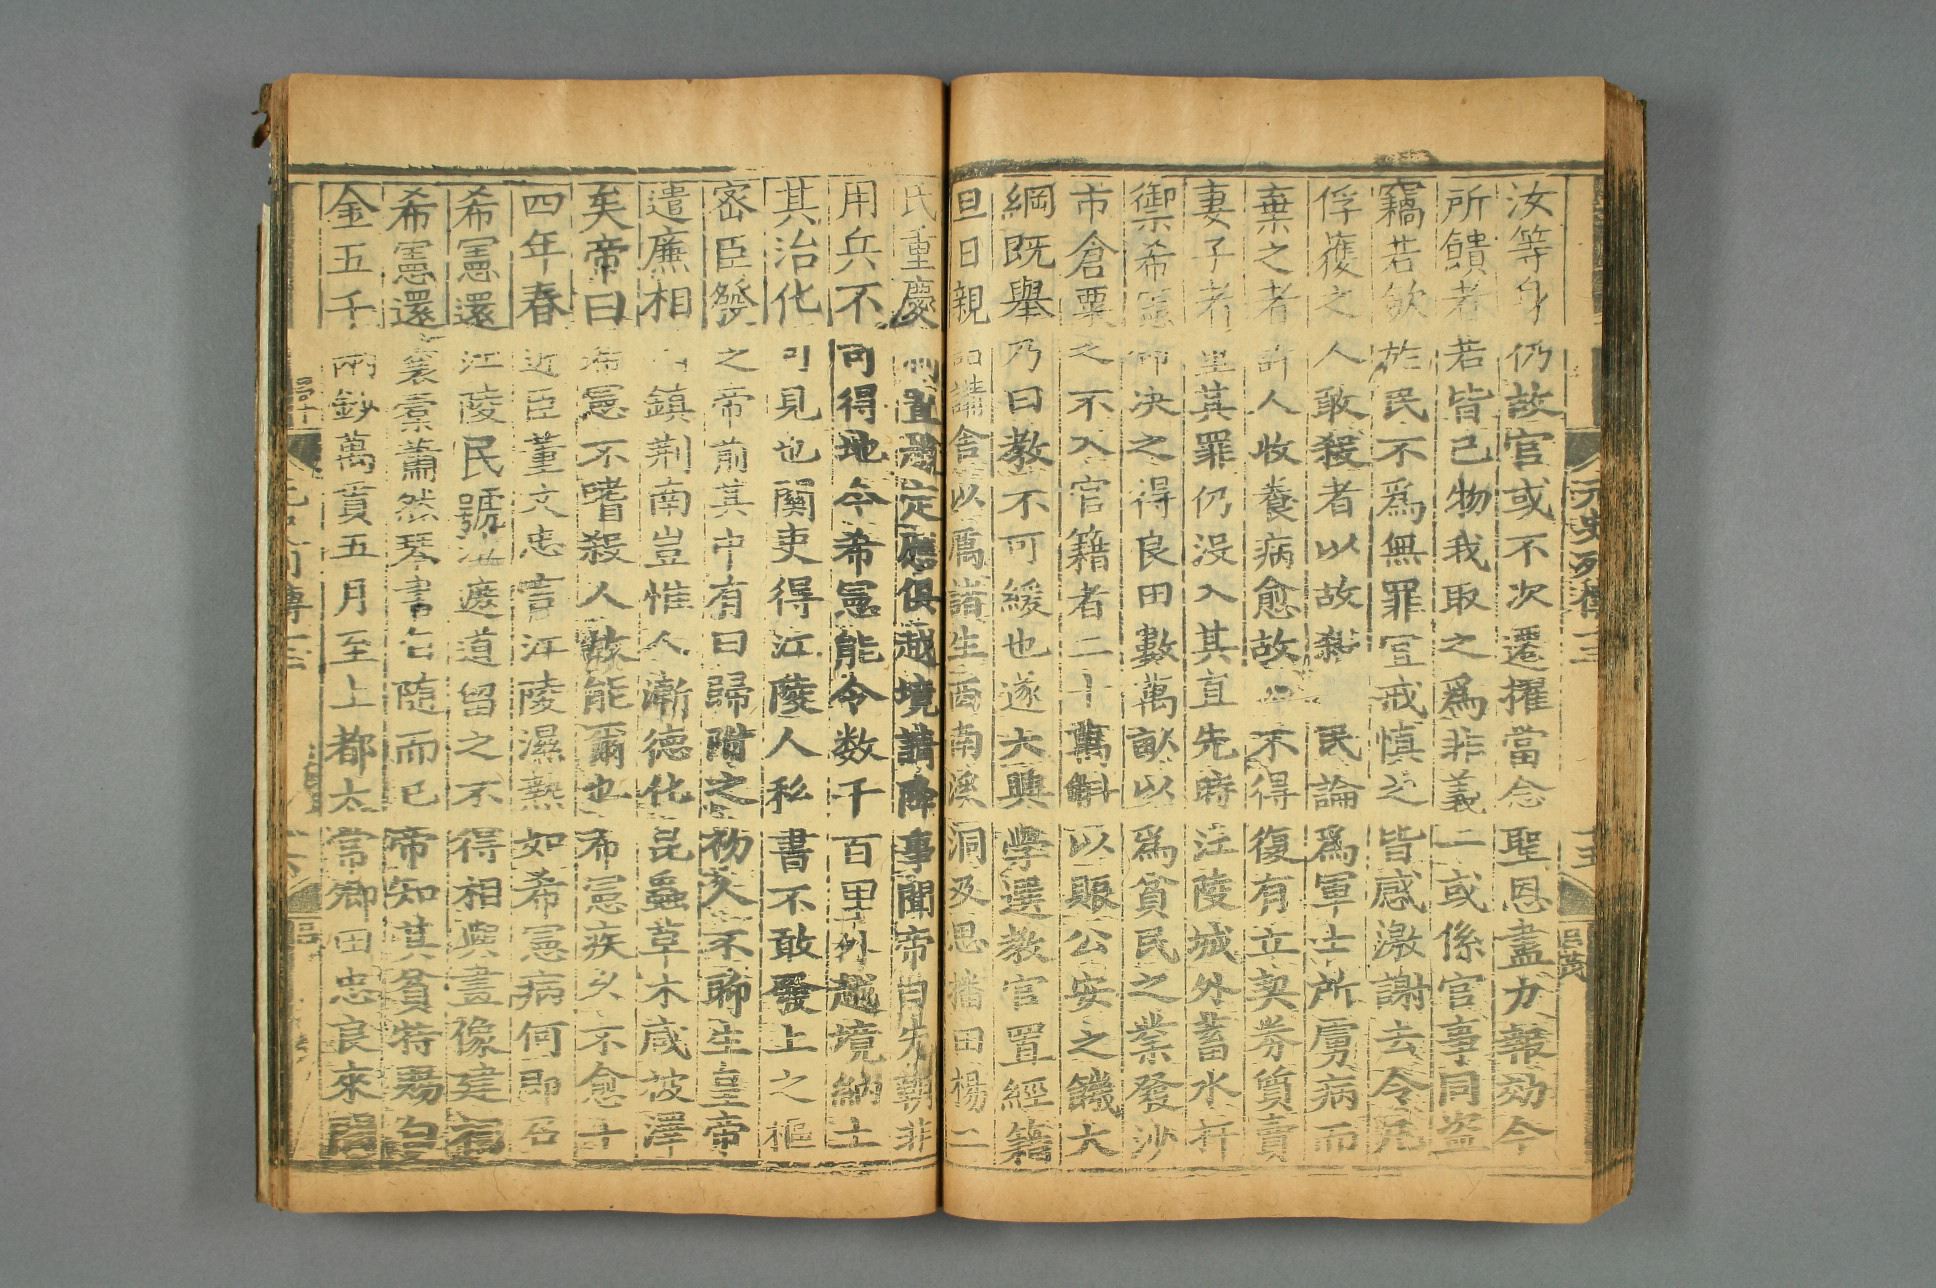 汝等身仍故官或不次遷擢當念聖恩盡力報効今
所饋者若皆己物我取之爲非義一或係官事同盜
竊若斂於民不爲無罪宜戒慎之皆感激謝去令凡
俘獲之人敢殺者以故殺民論爲軍士所虜病而
棄之者許人收養病愈故不得復有立契券質賣
妻子者其罪仍没入其直先時江陵城外蓄水扞
禦希憲命决之得良田數萬畝以爲貧民之業發沙
市倉粟之不入官籍者二十萬斛以賑公安之饑大
綱既舉乃曰教不可緩也遂大興學選教官置經籍
旦日親詣講舍以厲諸生西南溪洞及思播田楊二
氏重慶制置趙定應俱越境請降事聞帝曰先朝非
用兵不可得地今希憲能令數千百里外越境納土
其治化可見也關吏得江陵人私書不敢發上之樞
密臣發之帝前其中有曰歸附之初人不聊生皇帝
遣廉相鎮荆南豈惟人漸德化昆蟲草木咸被澤
矣帝曰希憲不嗜殺人故能爾也希憲疾久不愈十
四年春近臣董文忠言江陵濕熱如希憲病何即召
希憲還江陵民號泣遮道留之不得相與畫像建祠
希憲還囊橐蕭然琴書自隨而已帝知其貧特賜白
金五千兩鈔萬貫五月至上都太常卿田忠良來問
元史列傳十三
十五